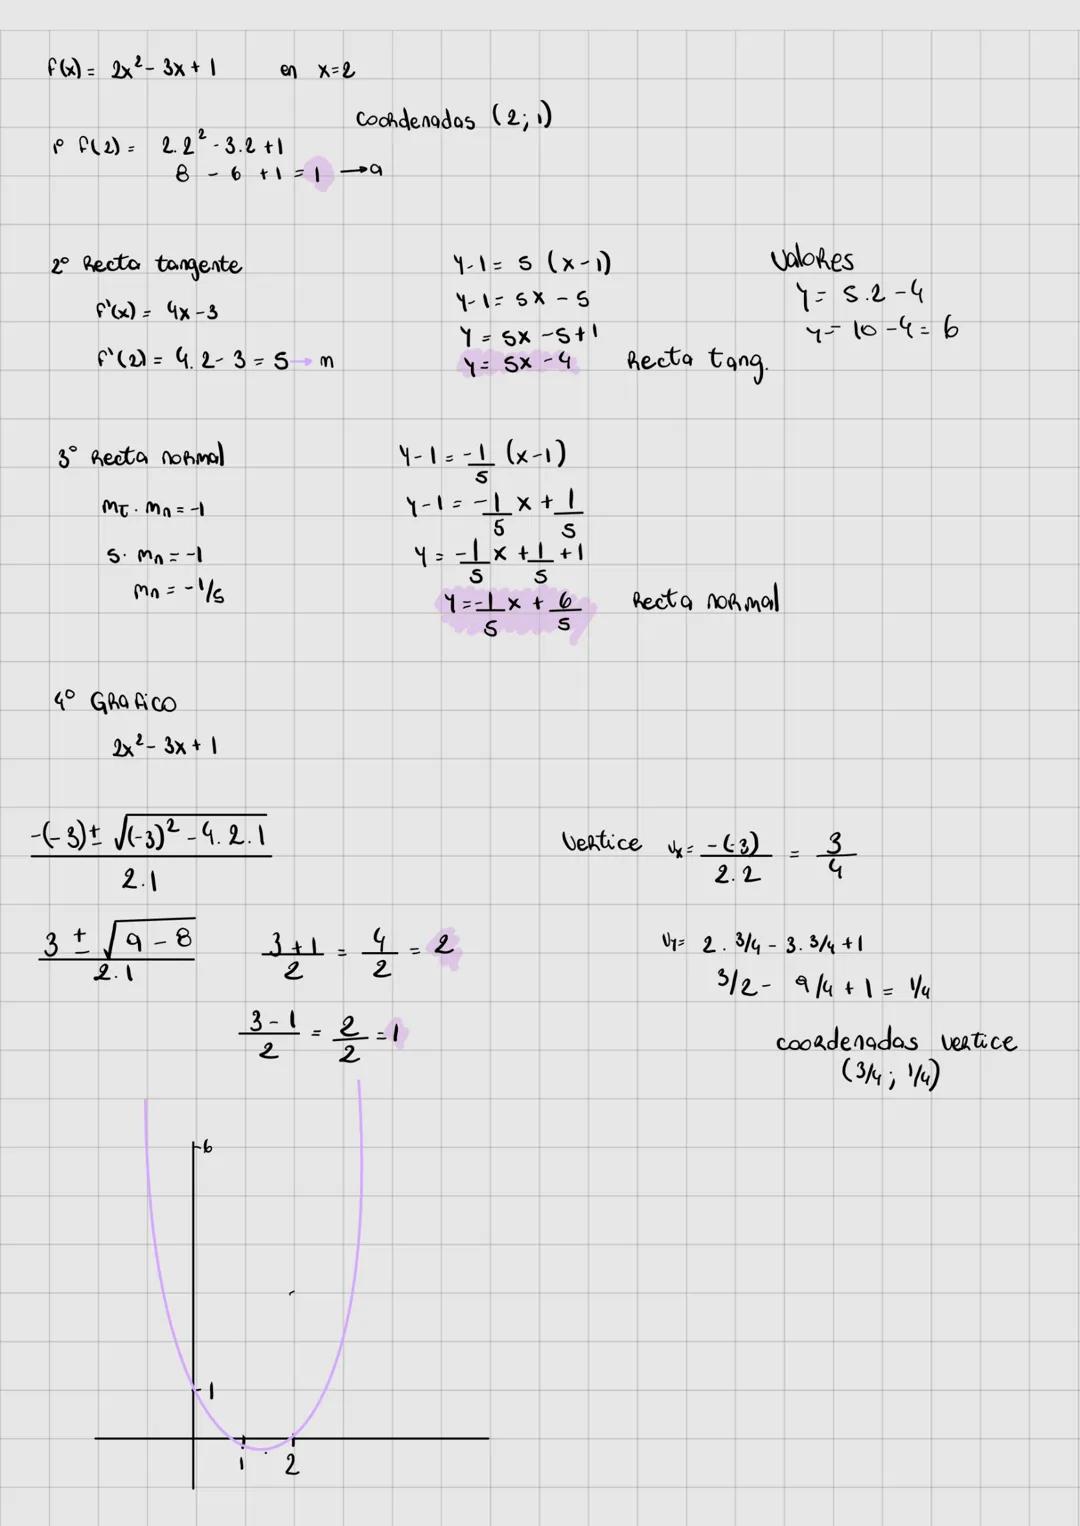 f(x) = 2x² - 3x + 1 en x=2
coordenadas (2; 1)
1º f(2) = 2.2² - 3.2 + 1
8 - 6 + 1 = 1 → a
2º Recta tangente
f'(x) = 4x - 3
f'(2) = 4.2 - 3 = 5 → m
y - 1 = 5 (x - 1)
y - 1 = 5x - 5
y = 5x - 5 + 1
y = 5x - 4 Recta tang.
Valores
y = 5.2 - 4
y = 10 - 4 = 6
3º Recta normal
mT . mn = -1
5 . mn = -1
mn = -1/5
y - 1 = -1/5 (x - 1)
y - 1 = -1/5 x + 1/5
y = -1/5 x + 1/5 + 1
y = -1/5 x + 6/5 Recta normal
4º Grafico
2x² - 3x + 1
-(-3) ± √(-3)² - 4.2.1
2.1
3 ± √9 - 8
2.1
3+1/2 = 4/2 = 2
3-1/2 = 2/2 = 1
Vertice Vx = -(-3)/2.2 = 3/4
Vy = 2 . 3/4 - 3 . 3/4 + 1
3/2 - 9/4 + 1 = 1/4
coordenadas vertice
(3/4 ; 1/4)
6
1
1 2